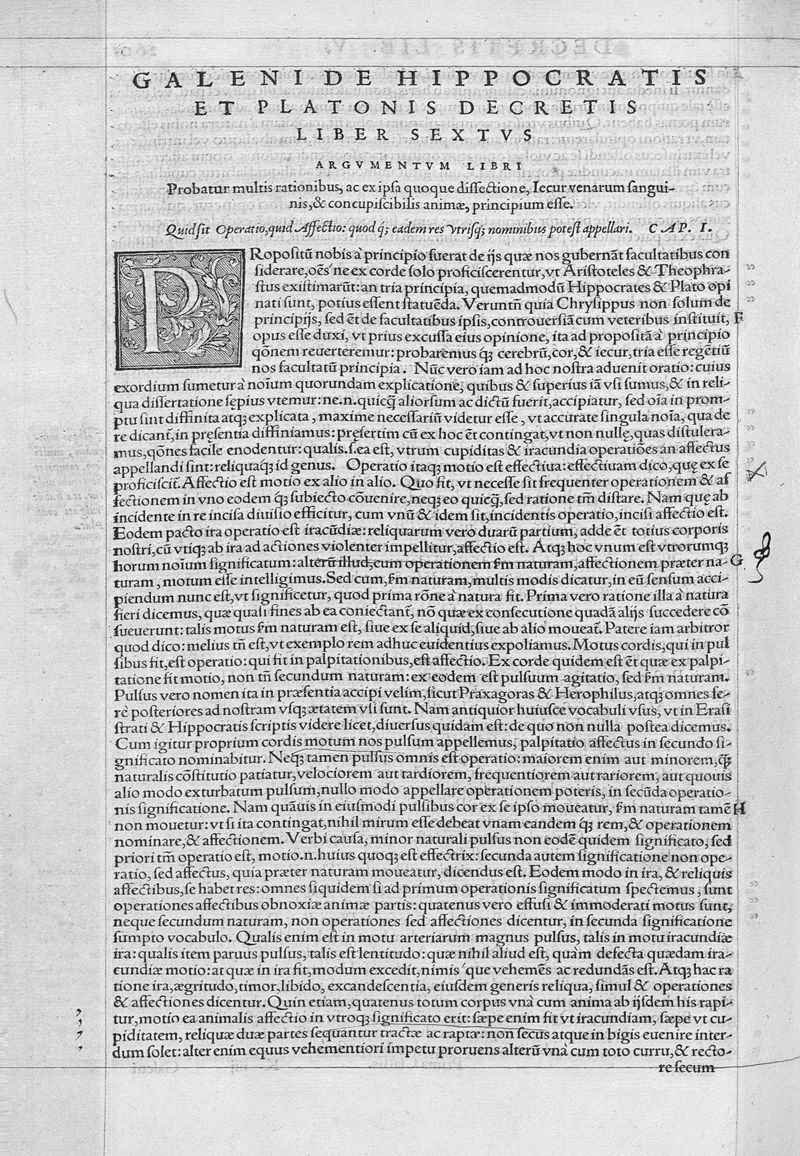 GALENI DE HIPPOCRATIS
ET PLATONIS DECRETIS
LIBER SEXTVS
ARGVMENTVM LIBRI
Probatur multis rationibus, ac ex ipsa quoque dissectione, Iecur venarum sangui-
nis,& concupiscibilis animæ, principium esse.
Quid sit Operatio,quid Affectio: quod q́; eadem res vtrisq; nominibus potest appellari. CAP. I.
PRopositũ nobis à principio fuerat de ijs quæ nos gubernãt facultatibus con
siderare,oẽs´ne ex corde solo proficiscerentur,vt Aristoteles & Theophra-
stus existimarũt:an tria principia, quemadmodũ Hippocrates & Plato opi
nati sunt, potius essent statuẽda. Veruntñ quia Chrysippus non solum de
principijs, sed ẽt de facultatibus ipsis,controuersiã cum veteribus instituit, F
opus esse duxi, vt prius excussa eius opinione, ita ad propositã à principio
qõnem reuerteremur: probaremus q́; cerebrũ,cor,& iecur,tria esse regẽtiũ
nos facultatũ principia. Nũc vero iam ad hoc nostra aduenit oratio: cuius
exordium sumetur à noĩum quorundam explicatione; quibus & superius iã vsi sumus,& in reli-
qua dissertatione sępius vtemur:ne.n.quicq̃ aliorsum ac dictũ fuerit,accipiatur, sed oĩa in prom-
ptu sint diffinita atq; explicata, maxime necessariũ videtur esse, vt accurate singula noĩa, qua de
re dicant̃, in pręsentia diffiniamus: pręsertim cũ ex hoc ẽt contingat,vt non nullę,quas distulera-
mus,qõnes facile enodentur: qualis.s.ea est, vtrum cupiditas & iracundia operatiões an affectus
appellandi sint:reliquaq́; id genus. Operatio itaq; motio est effectiua:effectiuam dico,quę ex se
proficiscit̃.Affectio est motio ex alio in alio. Quo fit, vt necesse sit frequenter operationem & af
fectionem in vno eodem q́; subiecto cõuenire,neq; eo quicq̃, sed ratione tm̃ distare. Nam quę ab
incidente in re incisa diuisio efficitur, cum vnũ & idem sit,incidentis operatio,incisi affectio est.
Eodem pacto ira operatio est iracũdiæ: reliquarum vero duarũ partium, adde ẽt totius corporis
nostri,cũ vtiq; ab ira ad actiones violenter impellitur,affectio est. Atq; hoc vnum est vtrorumq;
horum noĩum significatum: alterũ illud,cum operationem s̃m naturam,affectionem præter na- G
turam, motum esse intelligimus.Sed cum,s̃m naturam,multis modis dicatur,in eũ sensum acci-
piendum nunc est,vt significetur, quod prima rõne à natura fit. Prima vero ratione illa à natura
fieri dicemus, quæ quali fines ab ea coniectant̃, nõ quæ ex consecutione quadã alijs succedere cõ
sueuerunt: talis motus s̃m naturam est, siue ex se aliquid,siue ab alio moueat̃. Patere iam arbitror
quod dico: melius tm̃ est,vt exemplo rem adhuc euidentius expoliamus. Motus cordis,qui in pul
sibus fit,est operatio: qui fit in palpitationibus,est affectio. Ex corde quidem est ẽt quæ ex palpi-
tatione fit motio, non tm̃ secundum naturam: ex eodem est pulsuum agitatio, sed s̃m naturam.
Pulsus vero nomen ita in præsentia accipi velim,sicut Praxagoras & Herophilus,atq; omnes fe-
re posteriores ad nostram vsq; ætatem vsi sunt. Nam antiquior huiusce vocabuli vsus, vt in Erasi
strati & Hippocratis scriptis videre licet,diuersus quidam est: de quo non nulla postea dicemus.
Cum igitur proprium cordis motum nos pulsum appellemus, palpitatio affectus in secundo si-
gnificato nominabitur. Neq; tamen pulsus omnis est operatio: maiorem enim aut minorem,q̃;
naturalis cõstitutio patiatur,velociorem aut tardiorem, frequentiorem aut rariorem, aut quouis
alio modo exturbatum pulsum,nullo modo appellare operationem poteris, in secũda operatio-
nis significatione. Nam quãuis in eiusmodi pulsibus cor ex se ipso moueatur, s̃m naturam tamẽ H
non mouetur: vt si ita contingat,nihil mirum esse debeat vnam eandem q́; rem,& operationem
nominare,& affectionem. Verbi causa, minor naturali pulsus non eodẽ quidem significato, sed
priori tm̃ operatio est, motio.n.huius quoq; est effectrix: secunda autem significatione non ope-
ratio, sed affectus, quia præter naturam moueatur, dicendus est. Eodem modo in ira, & reliquis
affectibus,se habet res: omnes siquidem si ad primum operationis significatum spectemus, sunt
operationes affectibus obnoxiæ animæ partis: quatenus vero effusi & immoderati motus sunt,
neque secundum naturam, non operationes sed affectiones dicentur, in secunda significatione
sumpto vocabulo. Qualis enim est in motu arteriarum magnus pulsus, talis in motu iracundiæ
ira: qualis item paruus pulsus, talis est lentitudo: quæ nihil aliud est, quàm defecta quædam ira-
cundiæ motio: at quæ in ira fit,modum excedit,nimis´que vehemẽs ac redundãs est. Atq; hac ra
tione ira,ægritudo,timor,libido, excandescentia, eiusdem generis reliqua, simul & operationes
& affectiones dicentur. Quin etiam,quatenus totum corpus vnà cum anima ab ijsdem his rapi-
tur,motio ea animalis affectio in vtroq; significato erit: sæpe enim fit vt iracundiam, sæpe vt cu-
piditatem, reliquæ duæ partes sequantur tractæ ac raptæ: non secus atque in bigis euenire inter-
dum solet: alter enim equus vehementiori impetu proruens alterũ vnà cum toto curru,& recto-
re secum